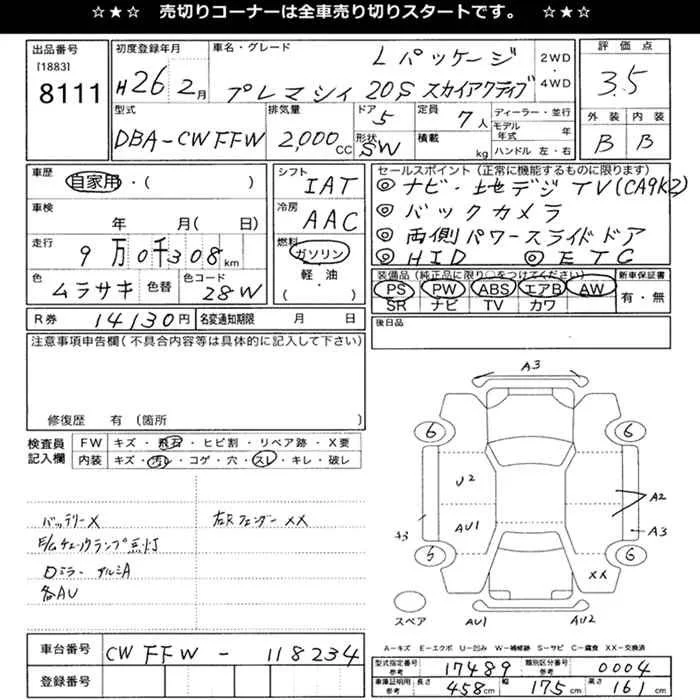 ☆★☆ 売切りコーナーは全車売り切りスタートです。 ☆★☆
出品番号
[1883]
8111
初度登録年月
H26 2月
車名・グレード
Lパッケージ
プレマシィ 20S スカイアクティブ
2WD
4WD
評価点
3.5
外装 内装
B B
型式
DBA-CWFFW
排気量
2,000cc
ドア
5
形状
SW
定員
7人
積載
kg
ディーラー・並行
モデル年式 年
ハンドル 左・右
車歴
自家用・( )
車検
年 月( 日)
走行
9万0千308km
色
ムラサキ
色替
色コード
28W
シフト
IAT
冷房
AAC
燃料
ガソリン
軽・油
( )
セールスポイント(正常に機能するものに限ります)
◎ナビ・地デジTV(CA9K2)
◎バックカメラ
◎両側パワースライドドア
◎HID ◎ETC
装備品(純正品に限り○をつけてください)
PS PW ABS エアB AW
SR ナビ TV カワ
新車保証書
有・無
R券
14130円
名変通知期限 月 日
後日品
注意事項申告欄(不具合内容等は具体的に記入して下さい)
修復歴 有(箇所
検査員記入欄
FW キズ・飛石・ヒビ割・リペア跡・X要
内装 キズ・汚レ・コゲ・穴・スレ・キレ・破レ
バッテリーX
E/Gチェックランプ点灯
Dミラー アルミA
各AU
左Rフェンダー XX
A3
6 6
U2
A2
AU1
A3 A3
5 6
XX
スペア
AU1 AU2
A-キズ E-エクボ U-凹み W-補修跡 S-サビ C-腐食 XX-交換済
車台番号
CWFFW - 118234
登録番号
型式指定番号 参考
17489
類別区分番号 参考
0004
車庫証明用 参考
長さ 458cm 幅 175cm 高さ 161cm